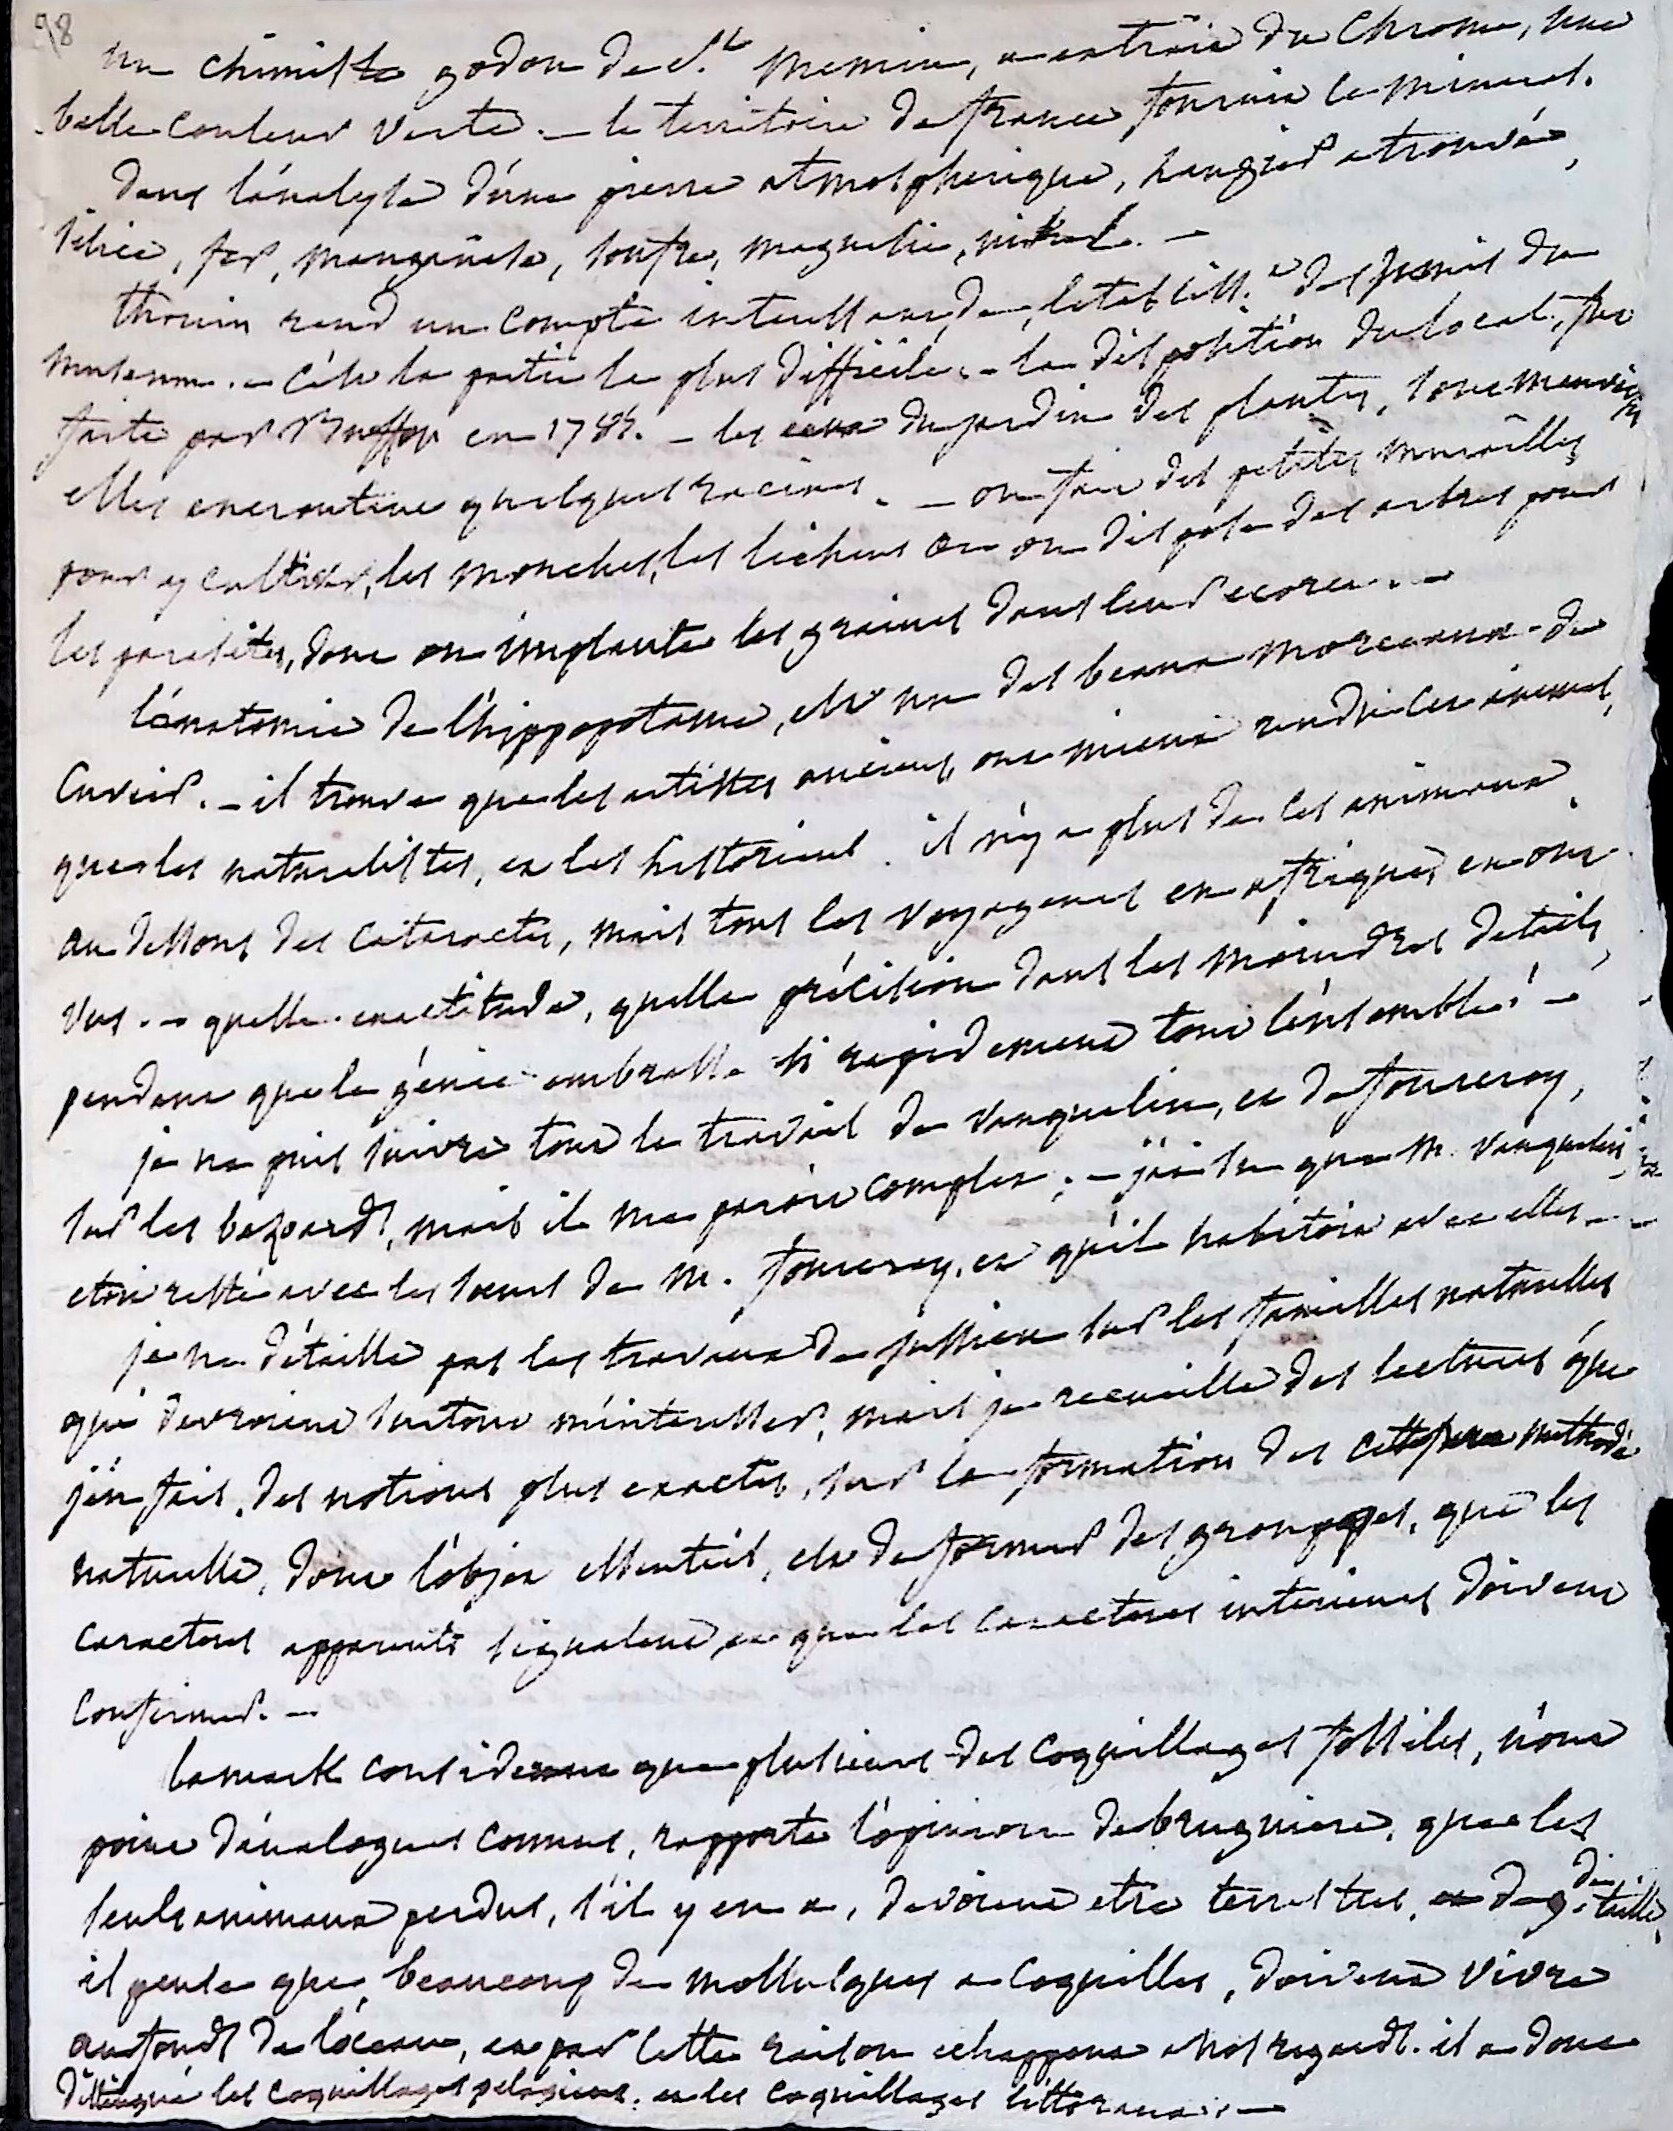 98
un chimiste godon de St. Memin, a extrait du chrome, une
belle couleur verte. – le territoire de france fournit ce mineral.
dans l'analyse d'une pierre atmospherique, Laugier a trouvé,
silice, fer, manganese, soufre, magnesie, nickel. –
thouin rend un compte interessant, de l'etabliss.t des semis du
museum. – c'est la partie la plus difficile. – la disposition du local, fut
faite par Buffon en 1784. – les eaux du jardin des plantes, sont mauvaises
elles encroutent quelques racines. – on fait des petites murailles
pour y cultiver, les mouches, les lichens et on dispose des arbres pour
les parasites, dont on implante les graines dans leur ecorce. –
l'anatomie de l'hippopotame, est un des beaux morceaux de
Cuvier. – il trouve que les artistes anciens, ont mieux rendu ces animaux,
que les naturalistes, et les historiens. il n'y a plus de ces animaux
au dessous des cataractes, mais tous les voyageurs en afrique, en ont
vus. – quelle exactitude, quelle précision dans les moindres details,
pendant que le génie embrasse si rapidement tout l'ensemble! –
je ne puis suivre tout le travail de vauquelin, et de fourcroy,
sur les bezoards, mais il me paroit complet; – j'ai su que M. vauquelin,
etoit resté avec les soeurs de M. fourcroy, et qu'il habitoit avec elles. –
je ne détaille pas les travaux de jussieu sur les familles naturelles
qui devroient surtout m'interesser, mais je recueille des lectures que
j'en fais, des notions plus exactes, sur la formation des cette methode
naturelle, dont l'objet essentiel, est de former des grouppes, que les
caracteres apparents signalent, et que les caracteres interieurs doivent
confirmer. –
lamark considerant que plusieurs des coquillages fossiles, n'ont
point d'analogues connus, rapporte l'opinion de bruguiere, que les
seuls animaux perdus, s'il y en a, devoient etre terrestres, et de g.de taille.
il pense que beaucoup de mollusques a coquilles, doivent vivre
au fonds de l'ocean, et par cette raison echappent a nos regards. il a donc
distingué les coquillages pelagiens, et les coquillages littoraux. –